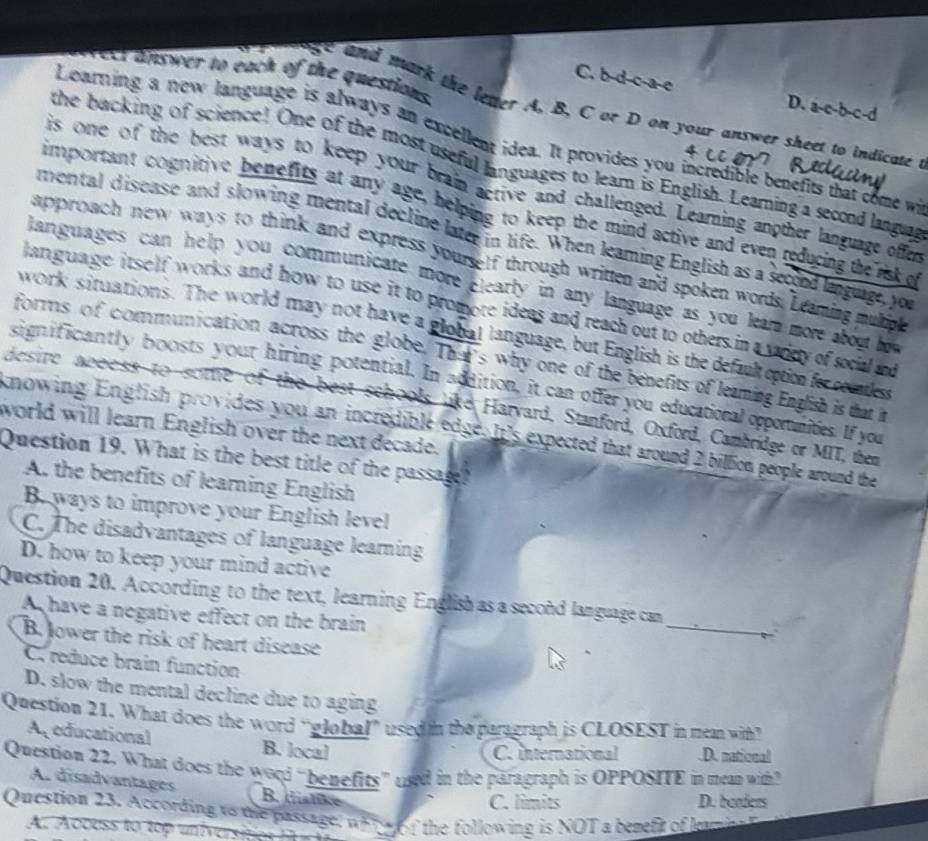 C. b-d-c-a-e
D. a-e-b-c-d
and mark the letter A, B, C or D on your answer sheet to indicate
answer to each of the questions.
Learning a new language is always an excellent idea. It provides you incredible benefits that come with
the backing of science! One of the most useful languages to learn is English. Learning a second language
is one of the best ways to keep your brain active and challenged. Learning another language offers
important cognitive benefits at any age, helping to keep the mind active and even reducing the risk of
mental disease and slowing mental decline later in life. When learning English as a second language, you
approach new ways to think and express yourself through written and spoken words. Learning multiple
languages can help you communicate more clearly in any language as you learn more about how
language itself works and how to use it to promote ideas and reach out to others in a variety of social and
work situations. The world may not have a global language, but English is the default option for countless
forms of communication across the globe. That's why one of the benefits of learning English is that it
significantly boosts your hiring potential. In addition, it can offer you educational opportunities. If you
desire access to some of the best schools like Harvard, Stanford, Oxford, Cambridge or MIT, then
knowing English provides you an incredible edge. It's expected that around 2 billion people around the
world will learn English over the next decade.
Question 19. What is the best title of the passage?
A. the benefits of learning English
B. ways to improve your English level
C. The disadvantages of language learning
D. how to keep your mind active
Question 20. According to the text, learning English as a second language can ______.
A. have a negative effect on the brain
B. lower the risk of heart disease
C. reduce brain function
D. slow the mental decline due to aging
Question 21. What does the word "global" used in the paragraph is CLOSEST in mean with?
A. educational B. local C. international D. national
Question 22. What does the word "benefits" used in the paragraph is OPPOSITE in mean with?
A. disadvantages B. dislike C. limits D. borders
Question 23. According to the passage, which of the following is NOT a benefit of learning
A. Access to top universities